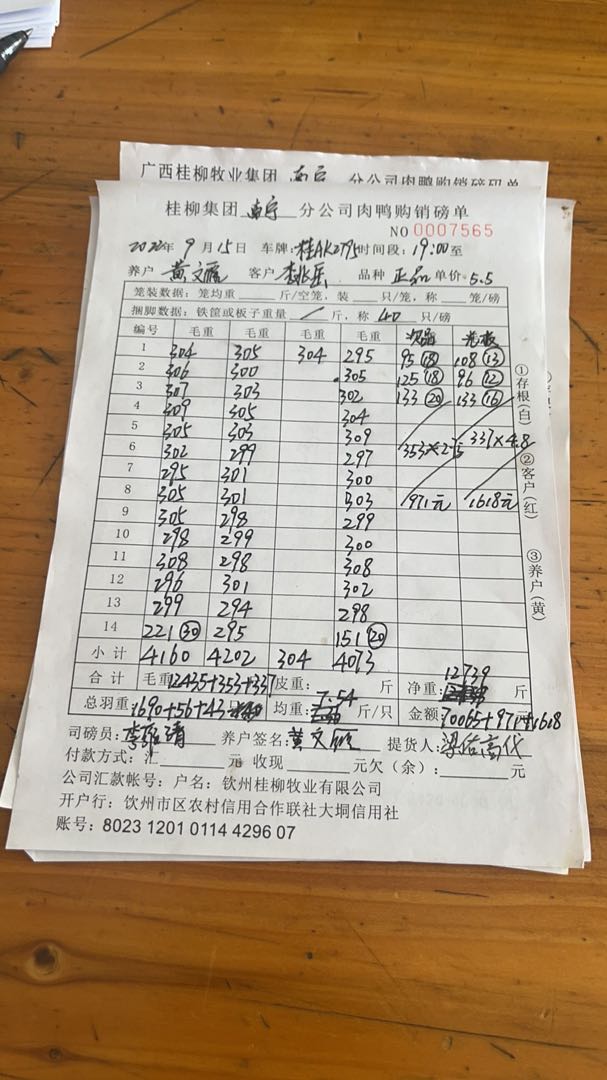 广西桂柳牧业集团 南宁 分公司肉鸭购销磅码单
桂柳集团 南宁 分公司肉鸭购销磅单
NO 0007565
2022年 9月15日 车牌:桂AK2795 时间段:19:00至
养户 黄文 客户 李兆乐 品种 正品 单价 5.5
笼装数据:笼均重 斤/空笼,装 只/笼,称 笼/磅
捆脚数据:铁筐或板子重量 / 斤,称 40 只/磅
编号 毛重 毛重 毛重 毛重 次品 光板
1 304 305 304 295 95 18 108 13
2 306 300 305 125 18 96 12
3 307 303 302 133 20 133 16
4 309 305 304
5 305 303 309
6 302 299 297 353×2.75 337×4.8
7 295 301 300
8 305 301 303 971元 1618元
9 305 298 299
10 298 299 300
11 308 298 308
12 296 301 302
13 299 294 298
14 221 30 295 151 20
小计 4160 4202 304 4073
合计 毛重 12435+353+337 皮重: 斤 净重: 12739 斤
总羽重: 1690+56+43 只 均重: 7.54 斤/只 金额 70065+971+1618
司磅员: 养户签名: 黄文 提货人:
付款方式:汇 元 收现 元欠(余): 元
公司汇款帐号:户名:钦州桂柳牧业有限公司
开户行:钦州市区农村信用合作联社大垌信用社
账号:8023 1201 0114 4296 07
①存根(白)
②客户(红)
③养户(黄)